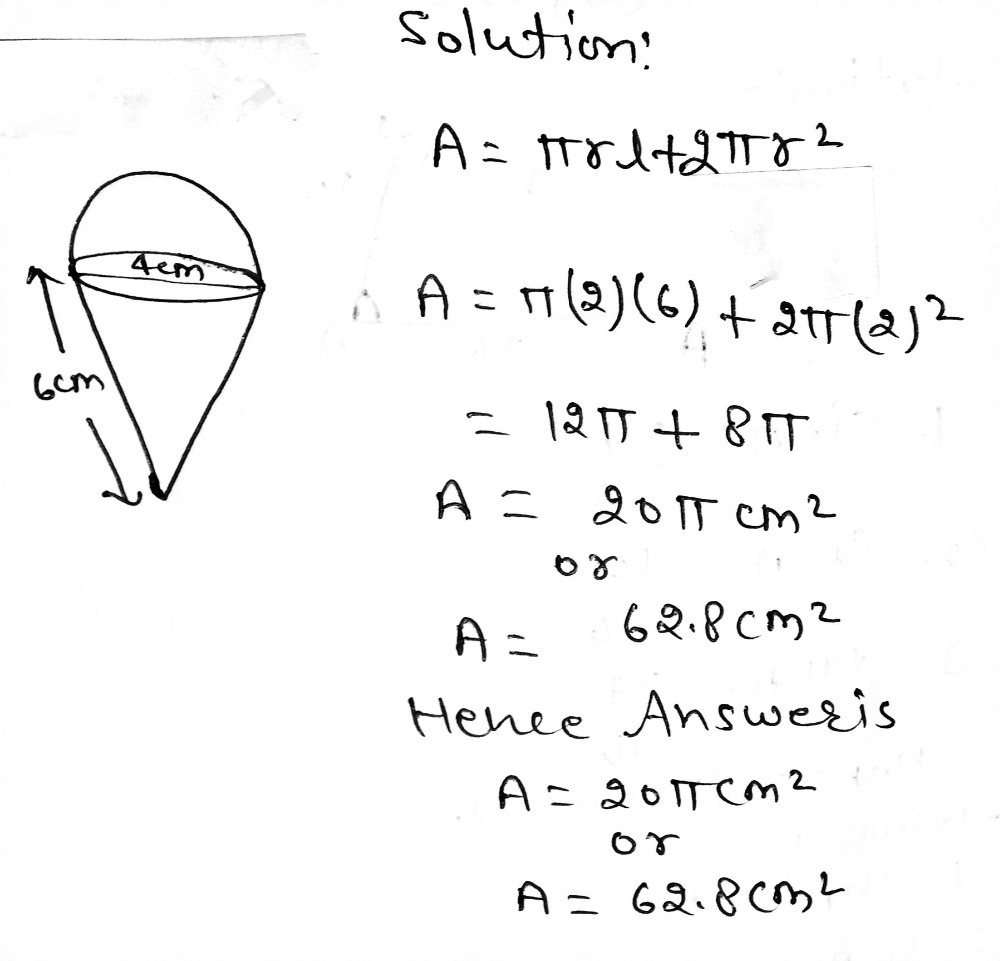 Solution:
A = πrl+2πr²
4cm
A = π(2)(6) + 2π(2)²
6cm
= 12π + 8π
A = 20π cm²
or
A = 62.8 cm²
Hence Answer is
A = 20π cm²
or
A = 62.8 cm²